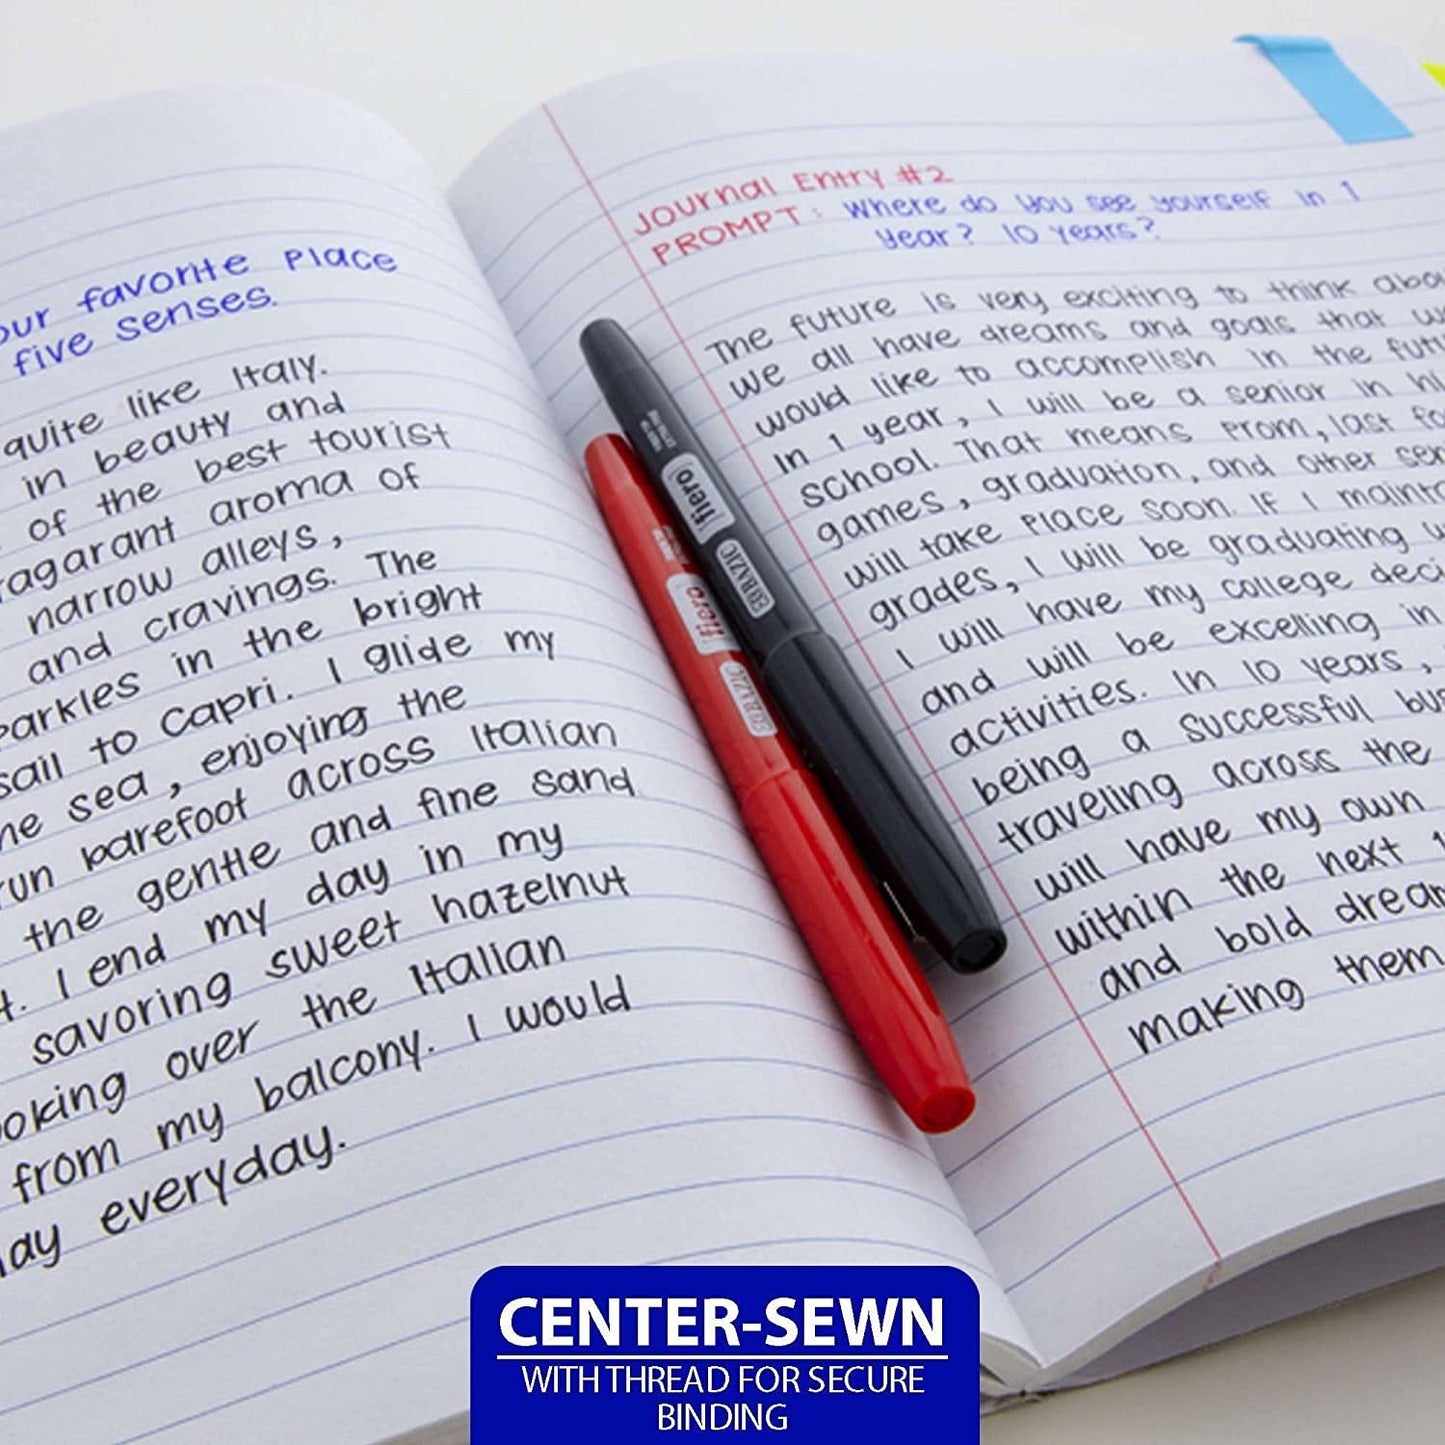 our favorite Place
five senses.
quite like Italy.
in beauty and
of the best tourist
ragarant aroma of
narrow alleys,
and cravings. The
parkles in the bright
sail to Capri. I glide my
he sea, enjoying the
run barefoot across Italian
the gentle and fine sand
t. I end my day in my
savoring sweet hazelnut
ooking over the Italian
from my balcony. I would
lay everyday.
JOURNAL ENTRY #2
PROMPT: Where do you see yourself in 1
year? 10 years?
The future is very exciting to think abou
we all have dreams and goals that w
would like to accomplish in the futu
in 1 year, I will be a senior in hi
school. That means Prom, last fo
games, graduation, and other sen
will take place soon. If I mainta
grades, I will be graduating w
I will have my college deci
and will be excelling in
activities. In 10 years,
being a successful bus
traveling across the
will have my own
within the next 1
and bold dream
making them
fiero
BAZIC
fiero
BAZIC
CENTER-SEWN
WITH THREAD FOR SECURE
BINDING